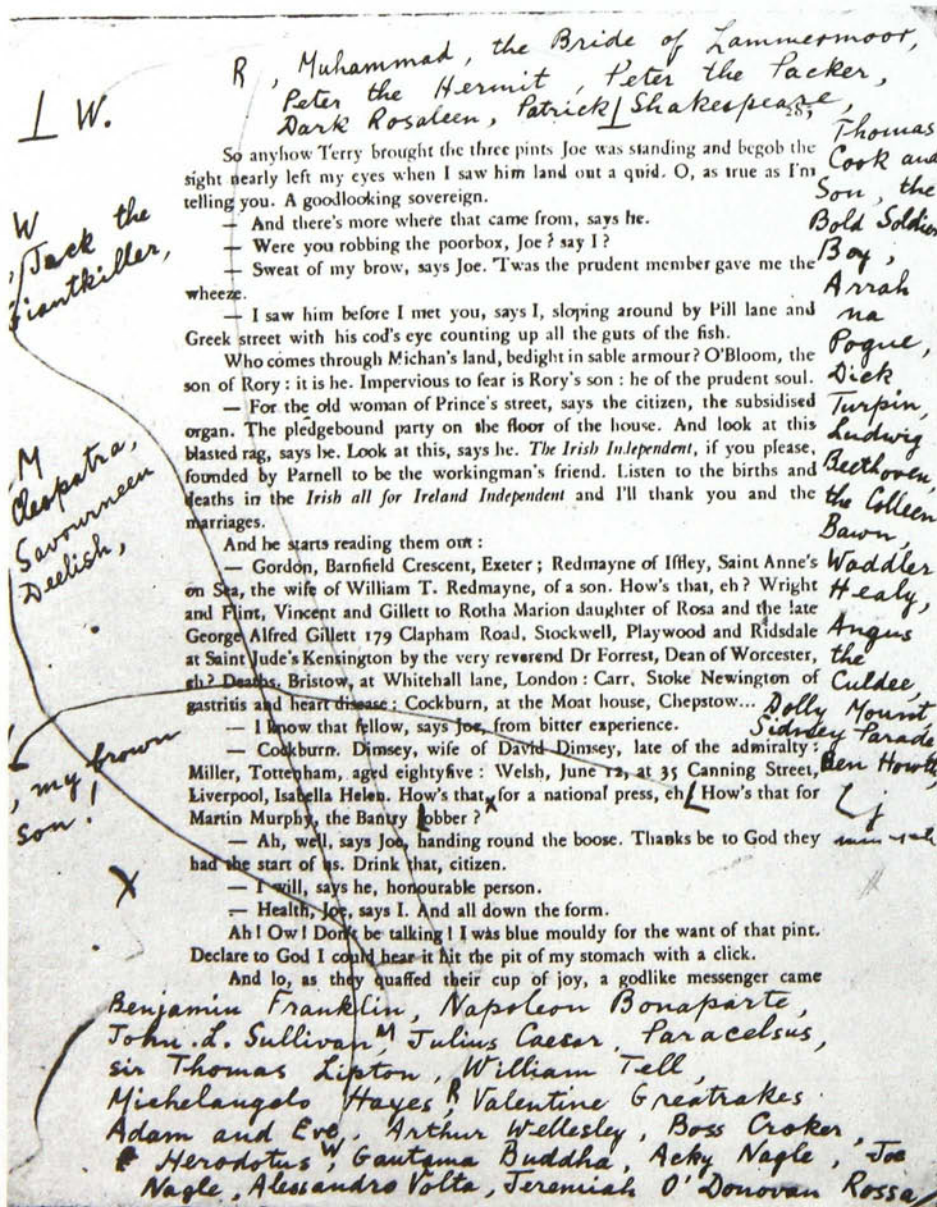 R, Muhammad, the Bride of Lammermoor,
Peter the Hermit, Peter the Packer,
Dark Rosaleen, Patrick Shakespeare,
W.
Thomas
Cook and
Son, the
Bold Soldier
Boy,
Arrah
na
Pogue,
Dick
Turpin,
Ludwig
Beethoven,
the Colleen
Bawn,
Waddler
Healy,
Angus
the
Culdee,
Dolly Mount,
Sidney Parade
Ben Howth,
W
, Jack the
Giantkiller,
M
Cleopatra,
Savourneen
Deelish,
, my brown
son!
X
So anyhow Terry brought the three pints Joe was standing and begob the
sight nearly left my eyes when I saw him land out a quid. O, as true as I'm
telling you. A goodlooking sovereign.
— And there's more where that came from, says he.
— Were you robbing the poorbox, Joe? say I?
— Sweat of my brow, says Joe. 'Twas the prudent member gave me the
wheeze.
— I saw him before I met you, says I, sloping around by Pill lane and
Greek street with his cod's eye counting up all the guts of the fish.
Who comes through Michan's land, bedight in sable armour? O'Bloom, the
son of Rory: it is he. Impervious to fear is Rory's son: he of the prudent soul.
— For the old woman of Prince's street, says the citizen, the subsidised
organ. The pledgebound party on the floor of the house. And look at this
blasted rag, says he. Look at this, says he. The Irish Independent, if you please,
founded by Parnell to be the workingman's friend. Listen to the births and
deaths in the Irish all for Ireland Independent and I'll thank you and the
marriages.
And he starts reading them out:
— Gordon, Barnfield Crescent, Exeter; Redmayne of Iffley, Saint Anne's
on Sea, the wife of William T. Redmayne, of a son. How's that, eh? Wright
and Flint, Vincent and Gillett to Rotha Marion daughter of Rosa and the late
George Alfred Gillett 179 Clapham Road, Stockwell, Playwood and Ridsdale
at Saint Jude's Kensington by the very reverend Dr Forrest, Dean of Worcester,
eh? Deaths. Bristow, at Whitehall lane, London: Carr, Stoke Newington of
gastritis and heart disease: Cockburn, at the Moat house, Chepstow...
— I know that fellow, says Joe, from bitter experience.
— Cockburn. Dimsey, wife of David Dimsey, late of the admiralty:
Miller, Tottenham, aged eightyfive: Welsh, June 12, at 35 Canning Street,
Liverpool, Isabella Helen. How's that for a national press, eh How's that for
Martin Murphy, the Bantry jobber?
— Ah, well, says Joe, handing round the boose. Thanks be to God they
had the start of us. Drink that, citizen.
— I will, says he, honourable person.
— Health, Joe, says I. And all down the form.
Ah! Ow! Don't be talking! I was blue mouldy for the want of that pint.
Declare to God I could hear it hit the pit of my stomach with a click.
And lo, as they quaffed their cup of joy, a godlike messenger came
Benjamin Franklin, Napoleon Bonaparte,
John L. Sullivan, M Julius Caesar, Paracelsus,
sir Thomas Lipton, William Tell,
Michelangelo Hayes, R Valentine Greatrakes
Adam and Eve, Arthur Wellesley, Boss Croker,
Herodotus, W Gautama Buddha, Acky Nagle, Joe
Nagle, Alessandro Volta, Jeremiah O'Donovan Rossa